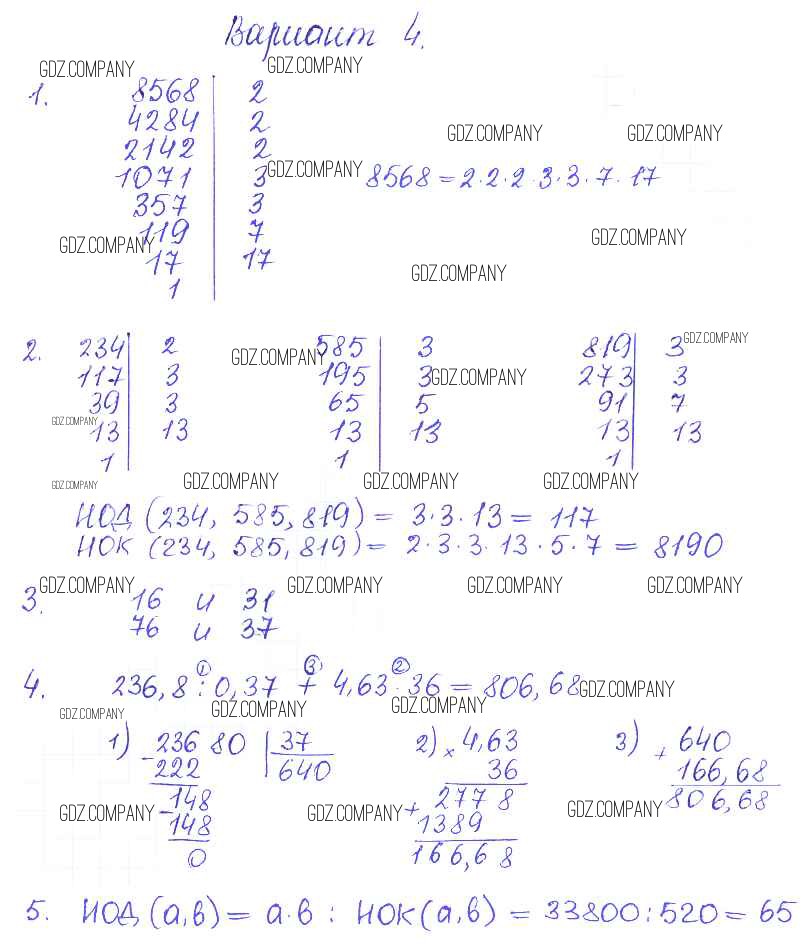 Вариант 4.
GDZ.COMPANY GDZ.COMPANY
1. 8568 | 2
4284 | 2
GDZ.COMPANY GDZ.COMPANY
2142 | 2
GDZ.COMPANY
1071 | 3 8568 = 2·2·2·3·3·7·17
357 | 3
119 | 7
GDZ.COMPANY GDZ.COMPANY
17 | 17
GDZ.COMPANY
1
2. 234 | 2 585 | 3 819 | 3
GDZ.COMPANY GDZ.COMPANY
117 | 3 195 | 3 273 | 3
GDZ.COMPANY
39 | 3 65 | 5 91 | 7
GDZ.COMPANY
13 | 13 13 | 13 13 | 13
1 1 1
GDZ.COMPANY GDZ.COMPANY GDZ.COMPANY GDZ.COMPANY
НОД (234, 585, 819) = 3·3·13 = 117
НОК (234, 585, 819) = 2·3·3·13·5·7 = 8190
GDZ.COMPANY GDZ.COMPANY GDZ.COMPANY GDZ.COMPANY
3. 16 и 31
76 и 37
1 3 2
4. 236,8 : 0,37 + 4,63 · 36 = 806,68
GDZ.COMPANY
GDZ.COMPANY GDZ.COMPANY GDZ.COMPANY
1) - 236 80 | 37 2) × 4,63 3) + 640
222 | 640 36 166,68
- 148 + 277 8 806,68
GDZ.COMPANY GDZ.COMPANY GDZ.COMPANY
148 1389
0 166,68
5. НОД (а,в) = а·в : НОК (а,в) = 33800 : 520 = 65